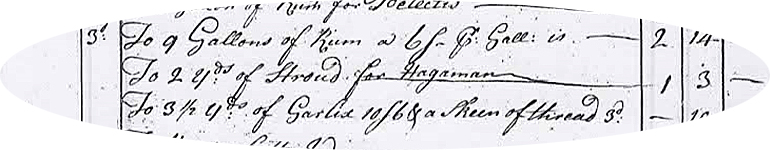 of Rum for
3d. To 9 Gallons of Rum a 6/- pr. Gall: is — 2 14
To 2 yds of Stroud for Hagaman — 1 3 —
To 3 1/2 yds of Garlix 10/6 & a Skeen of thread 3d. —